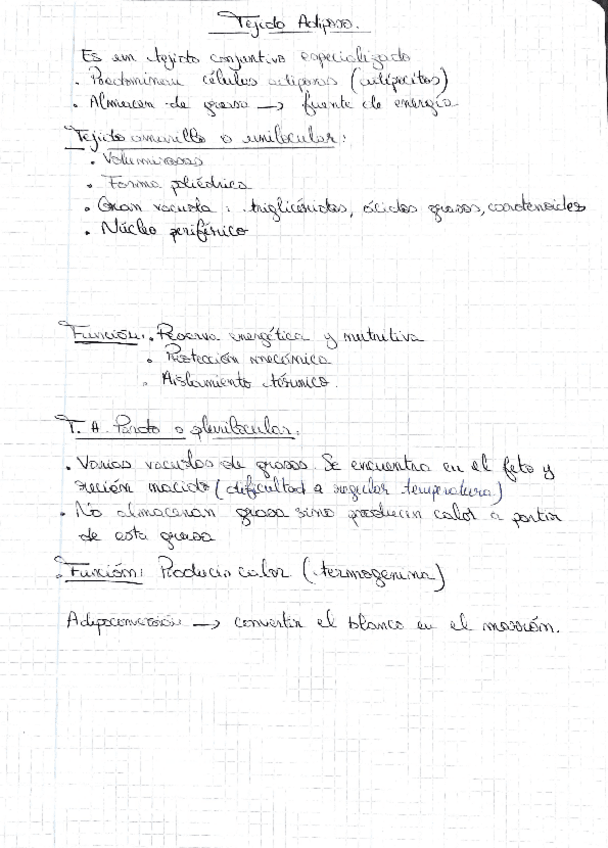 Tejido Adiposo.
Es un tejido conjuntivo especializado
· Predominan células adiposas (adipocitos)
· Almacen de grasa → fuente de energía
Tejido amarillo o unilocular:
· Voluminosas
· Forma poliédrica
· Gran vacuola : triglicéridos, ácidos grasos, carotenoides
· Núcleo periférico
Función: · Reserva energética y nutritiva
· Protección mecánica
· Aislamiento térmico.
T. A. Pardo o plurilocular:
· Varias vacuolas de grasas. Se encuentra en el feto y
recién nacido (dificultad a regular temperatura)
· No almacenan grasa sino producen calor a partir
de esta grasa
· Función: Producir calor (termogenina)
Adipoconversión → convertir el blanco en el marrón.